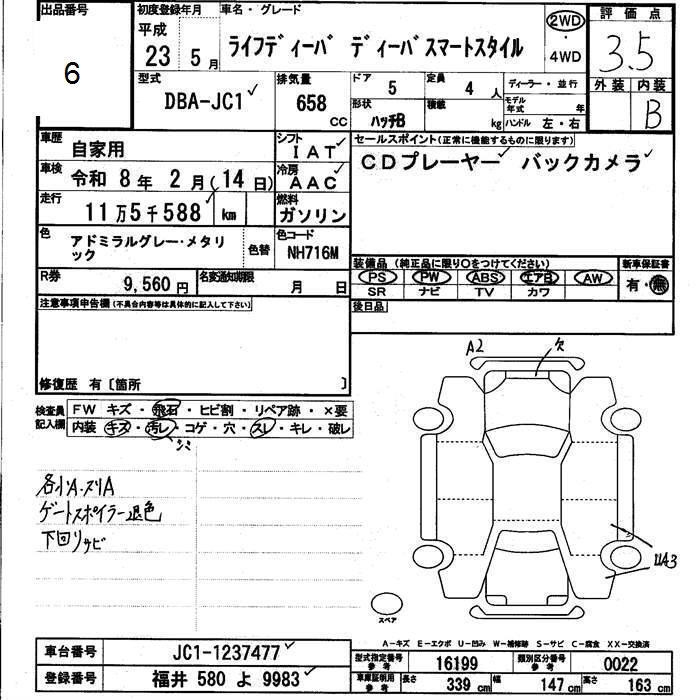 出品番号
6
初度登録年月
平成
23 5月
車名・グレード
ライフディーバ ディーバスマートスタイル
2WD
・
4WD
評価点
3.5
外装 内装
B
型式
DBA-JC1
排気量
658
CC
ドア
5
定員
4 人
形状
ハッチB
積載
kg
ディーラー・並行
モデル年式 年
ハンドル 左・右
車歴
自家用
シフト
IAT
セールスポイント(正常に機能するものに限ります)
CDプレーヤー バックカメラ
車検
令和 8年 2月(14日)
冷房
AAC
走行
11万5千588 km
燃料
ガソリン
色
アドミラルグレー・メタリ
ック
色替
色コード
NH716M
装備品 (純正品に限り○をつけてください)
PS PW ABS エアB AW
SR ナビ TV カワ
新車保証書
有・無
R券
9,560円
名変通知期限
月 日
後日品
注意事項申告欄 (不具合内容等は具体的に記入して下さい)
修復歴 有〔箇所 〕
検査員
記入欄
FW キズ・飛石・ヒビ割・リペア跡・×要
内装 キズ・汚レ・コゲ・穴・スレ・キレ・破レ
シミ
各小A・スリA
ゲートスポイラー退色
下回りサビ
A2
欠
UA3
スペア
A-キズ E-エクボ U-凹み W-補修跡 S-サビ C-腐食 XX-交換済
車台番号
JC1-1237477
登録番号
福井 580 よ 9983
型式指定番号
参考
16199
類別区分番号
参考
0022
車庫証明用
参考
長さ 339 cm
幅 147 cm
高さ 163 cm